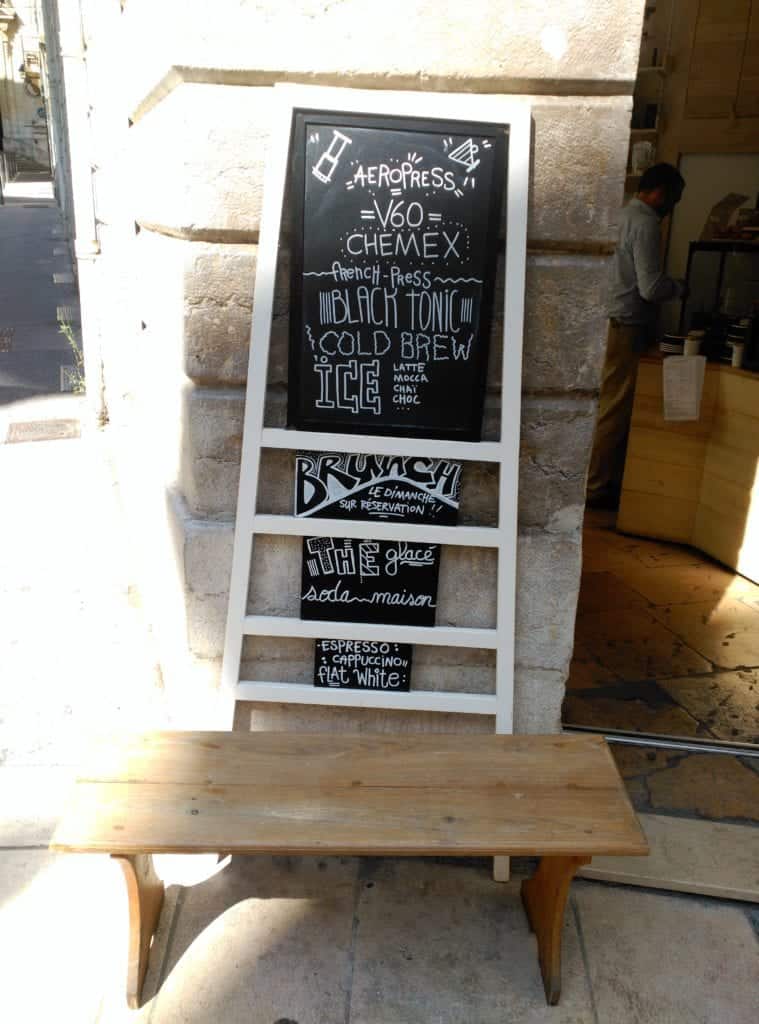 AEROPRESS
=V60=
CHEMEX
french-PRESS
BLACK TONIC
COLD BREW
ICE
LATTE
MOCCA
CHAÏ
CHOC
...
BRUNCH
LE DIMANCHE
SUR RÉSERVATION !!
THÉ glacé
soda maison
ESPRESSO
CAPPUCCINO
flAt White